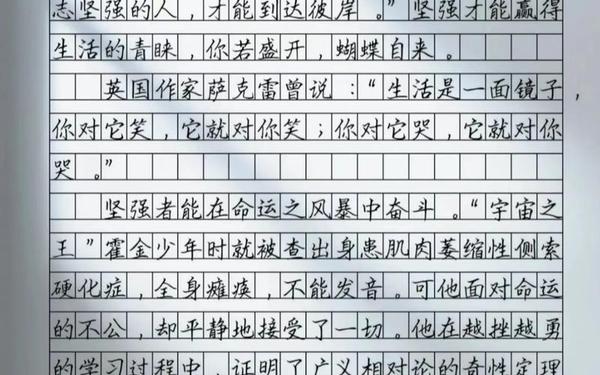 志坚强的人，才能到达彼岸。”坚强才能赢得
生活的青睐，你若盛开，蝴蝶自来。
英国作家萨克雷曾说：“生活是一面镜子，
你对它笑，它就对你笑；你对它哭，它就对你
哭。”
坚强者能在命运之风暴中奋斗。“宇宙之
王”霍金少年时就被查出身患肌肉萎缩性侧索
硬化症，全身瘫痪，不能发音。可他面对命运
的不公，却平静地接受了一切。他在越挫越勇
的学习过程中，证明了广义相对论的奇性定理